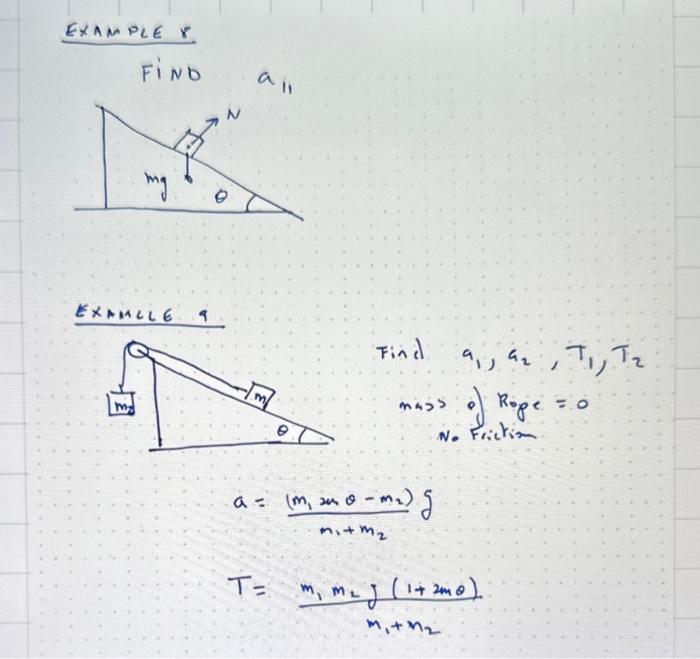 EXAMPLE 8
FIND a∥
N
mg
θ
EXAMLLE 9
Find a₁, a₂, T₁, T₂
m₂
m
mass of Rope = 0
θ
No Friction
a = (m₁ sin θ - m₂) g
m₁ + m₂
T = m₁ m₂ g (1 + sin θ)
m₁ + m₂